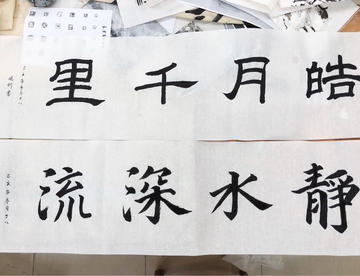 皓月千里
靜水深流